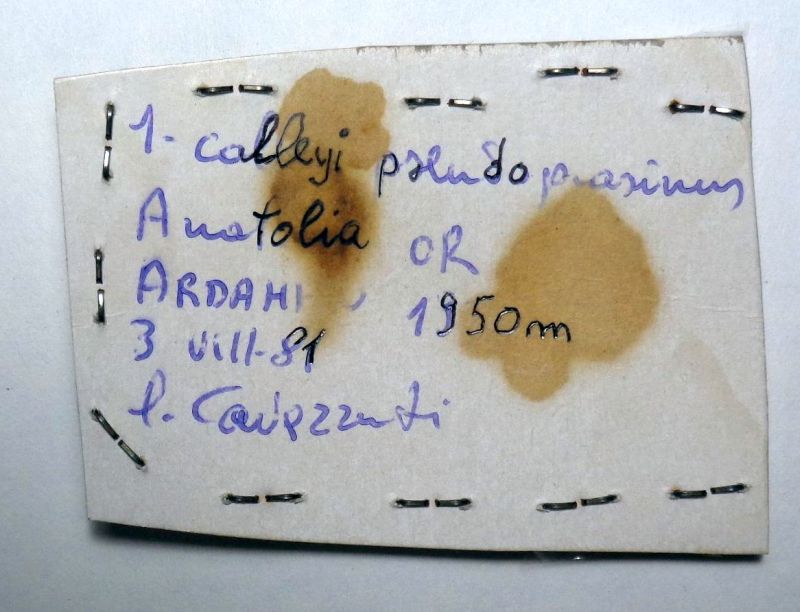 1- calleyi pseudoprasinus
Anatolia OR
ARDAHAN 1950m
3 VIII-81
l. Cavezzuti